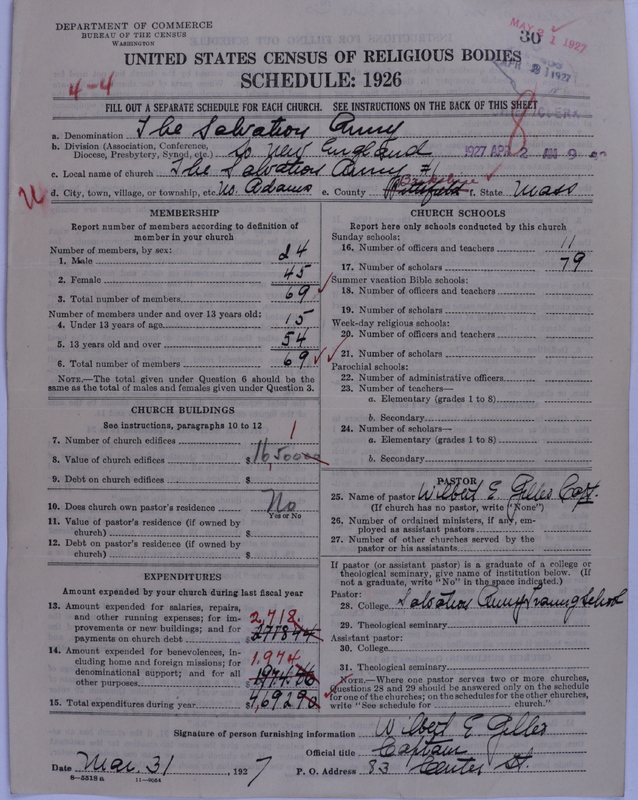 DEPARTMENT OF COMMERCE
BUREAU OF THE CENSUS
WASHINGTON
30
MAY 21 1927
UNITED STATES CENSUS OF RELIGIOUS BODIES
SCHEDULE: 1926
4-4
FILL OUT A SEPARATE SCHEDULE FOR EACH CHURCH. SEE INSTRUCTIONS ON THE BACK OF THIS SHEET
8
a. Denomination The Salvation Army
b. Division (Association, Conference,
Diocese, Presbytery, Synod, etc.) So New England
1927 APR 2 AM 9
c. Local name of church The Salvation Army
d. City, town, village, or township, etc. No. Adams e. County Berkshire f. State Mass
MEMBERSHIP
Report number of members according to definition of
member in your church
Number of members, by sex:
1. Male 24
2. Female 45
3. Total number of members 69
Number of members under and over 13 years old:
4. Under 13 years of age 15
5. 13 years old and over 54
6. Total number of members 69
NOTE.—The total given under Question 6 should be the
same as the total of males and females given under Question 3.
CHURCH BUILDINGS
See instructions, paragraphs 10 to 12
7. Number of church edifices 1
8. Value of church edifices $16,50000
9. Debt on church edifices $
10. Does church own pastor's residence No
Yes or No
11. Value of pastor's residence (if owned by
church) $
12. Debt on pastor's residence (if owned by
church) $
EXPENDITURES
Amount expended by your church during last fiscal year
13. Amount expended for salaries, repairs,
and other running expenses; for im-
provements or new buildings; and for
payments on church debt 2,718
14. Amount expended for benevolences, in-
cluding home and foreign missions; for
denominational support; and for all
other purposes 1,974
15. Total expenditures during year $4,69290
CHURCH SCHOOLS
Report here only schools conducted by this church
Sunday schools:
16. Number of officers and teachers 11
17. Number of scholars 79
Summer vacation Bible schools:
18. Number of officers and teachers
19. Number of scholars
Week-day religious schools:
20. Number of officers and teachers
21. Number of scholars
Parochial schools:
22. Number of administrative officers
23. Number of teachers—
a. Elementary (grades 1 to 8)
b. Secondary
24. Number of scholars—
a. Elementary (grades 1 to 8)
b. Secondary
PASTOR
25. Name of pastor Wilbert E. Gilles Capt.
(If church has no pastor, write "None")
26. Number of ordained ministers, if any, em-
ployed as assistant pastors
27. Number of other churches served by the
pastor or his assistants
If pastor (or assistant pastor) is a graduate of a college or
theological seminary, give name of institution below. (If
not a graduate, write "No" in the space indicated.)
Pastor:
28. College Salvation Army Traning School
29. Theological seminary
Assistant pastor:
30. College
31. Theological seminary
NOTE.—Where one pastor serves two or more churches,
Questions 28 and 29 should be answered only on the schedule
for one of the churches; on the schedules for the other churches,
write "See schedule for church."
Signature of person furnishing information Wilbert E Gilles
Official title Captain
Date Mar. 31, 1927 P. O. Address 83 Center St.
8—5518a 11—9084